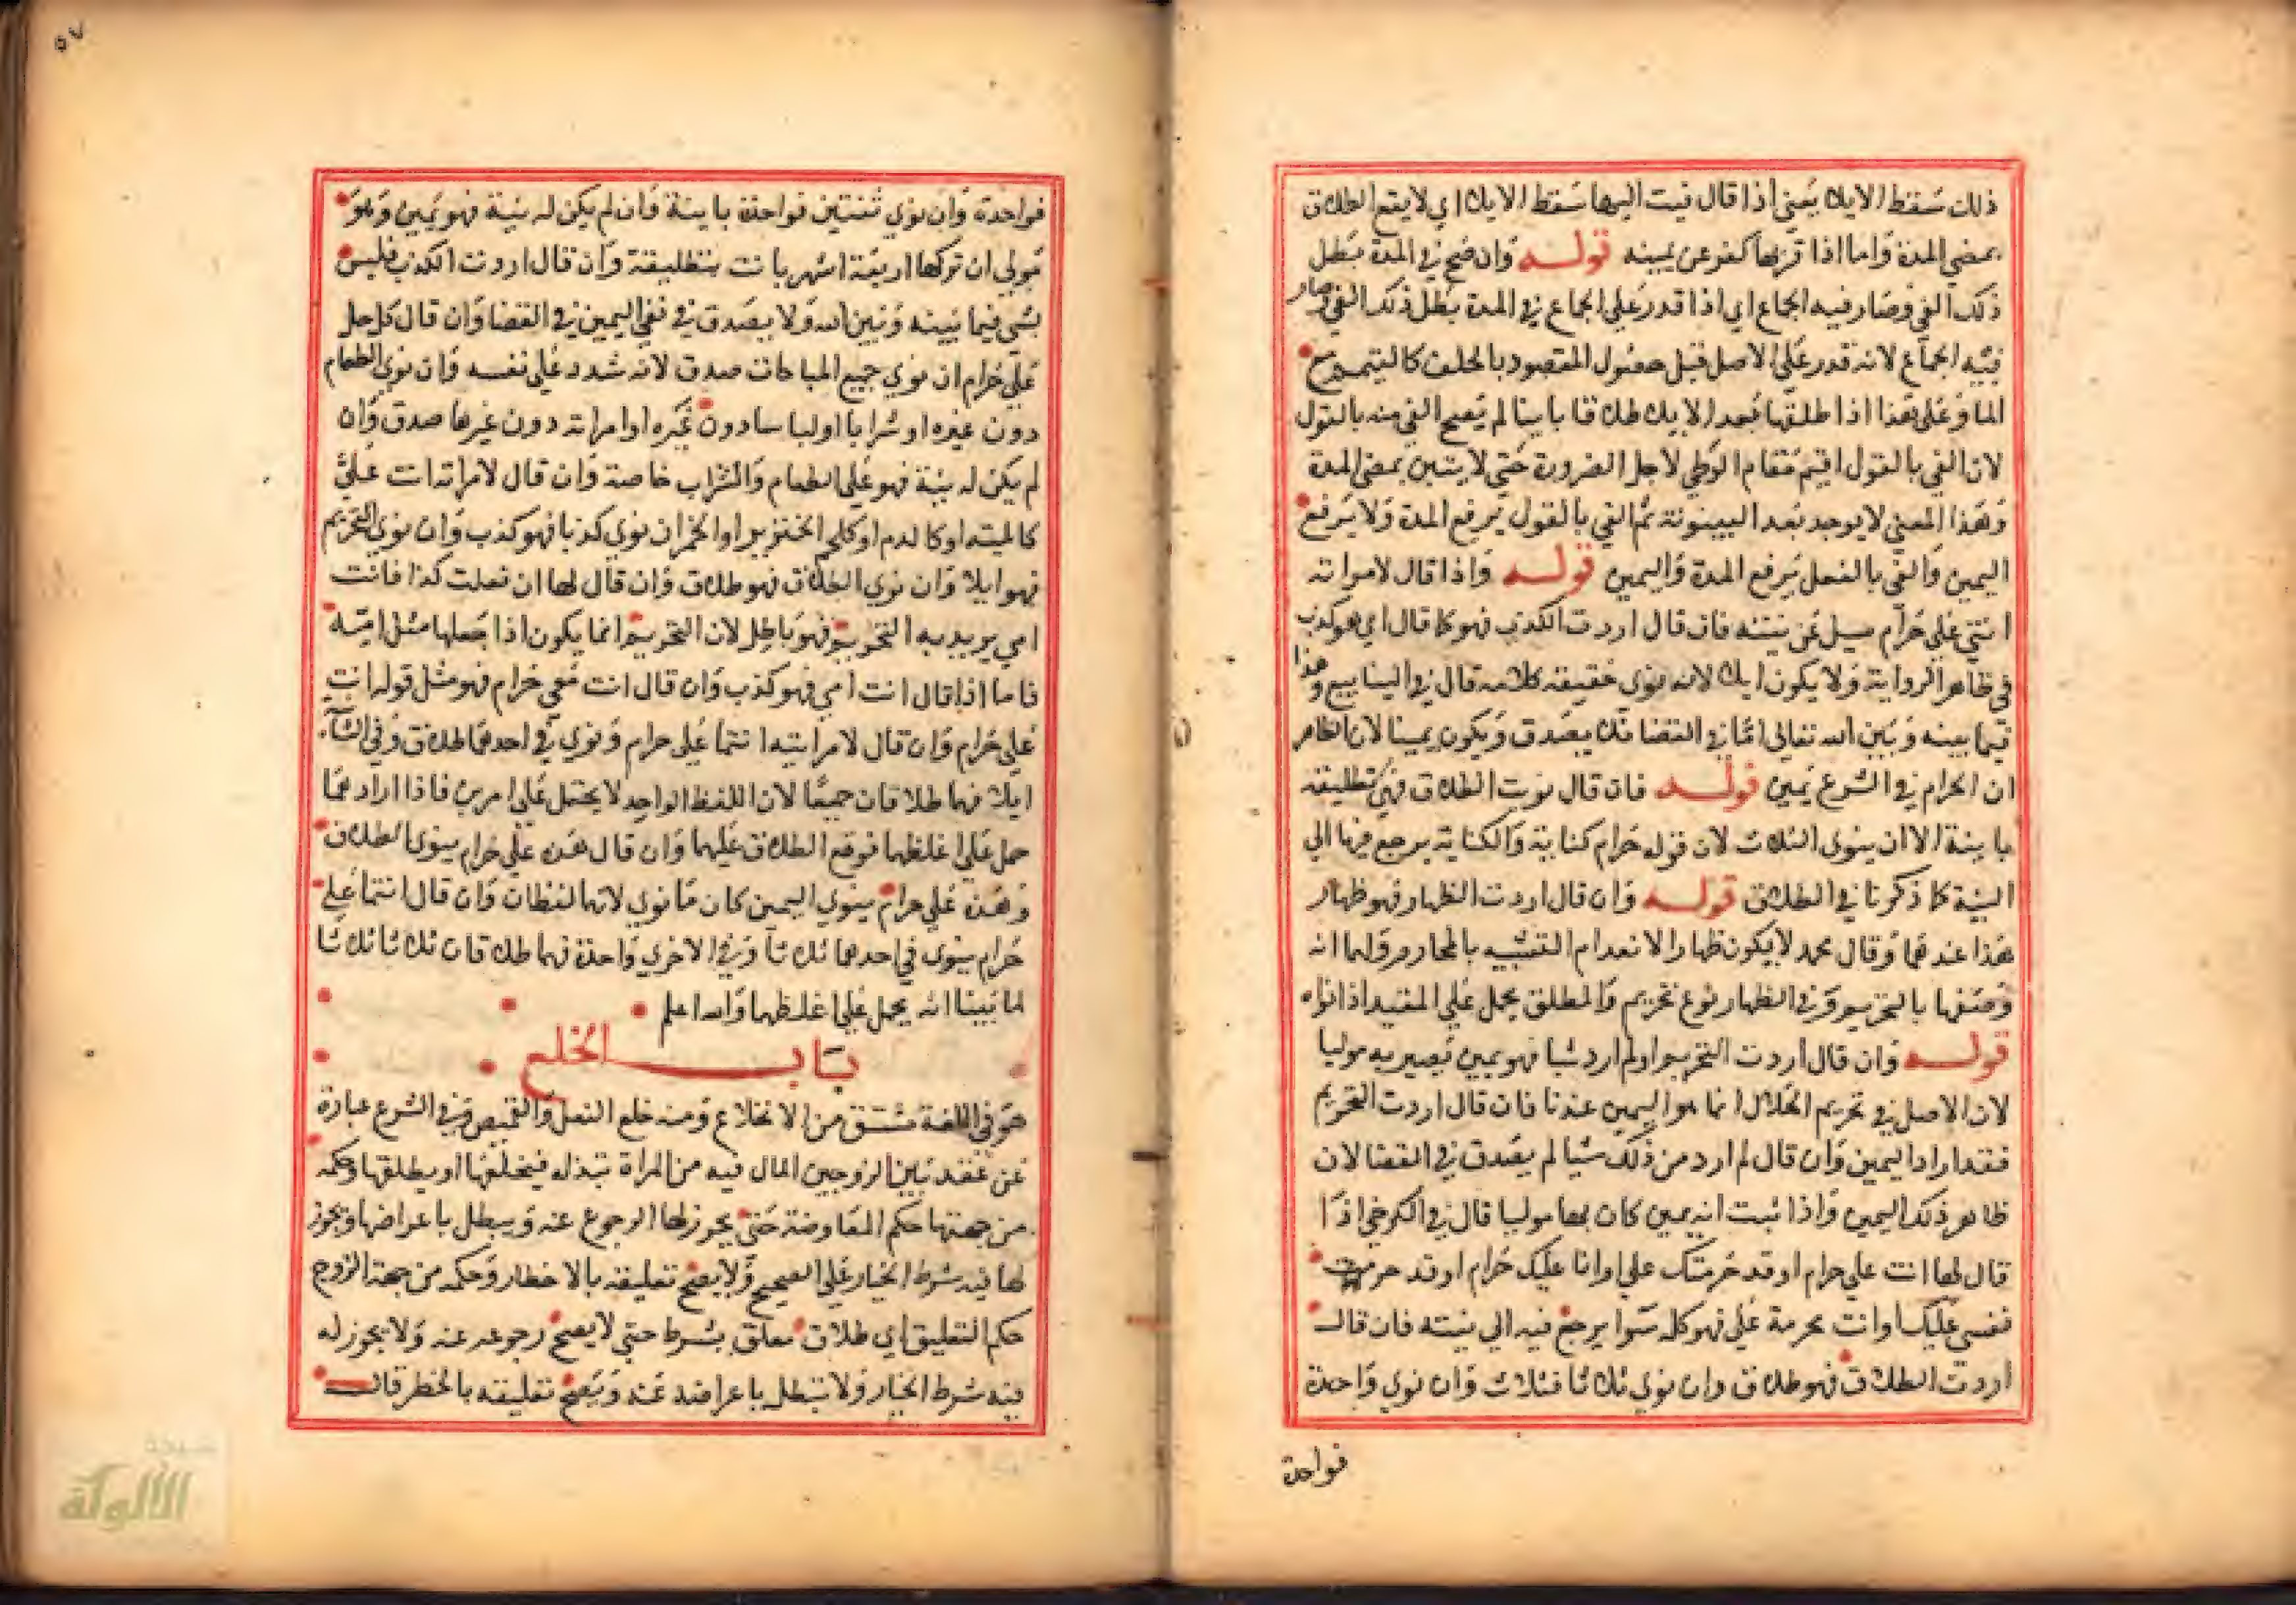 ذلك سقط الايلا يعني اذا قال فيت اليها سقط الايلا اي لا يقع الطلاق
بمضي المدة واما اذا قربها كفر عن يمينه قوله وان صح في المدة بطل
ذلك الفي وصار فيه الجماع اي اذا قدر علي الجماع في المدة بطل ذلك الفي وصار
فيه الجماع لانه قدر علي الاصل قبل حصول المقصود بالحلف كالمتيمم مع
الما وعلي هذا اذا طلقها بعد الايلا طلاقا باينا لم يصح الفي منه بالقول
لان الفي بالقول اقيم مقام الوطي لاجل الضرورة حتي لا يتبين بمضي المدة
وهذا المعني لا يوجد بعد البينونة ثم الفي بالقول يرفع المدة ولا يرفع
اليمين والفي بالفعل يرفع المدة واليمين قوله واذا قال لامراته
انتي علي حرام سيل عن نيته فان قال اردت الكذب فهو كما قال اي هو كذب
في ظاهر الرواية ولا يكون ايلا لانه نوي حقيقة كلامه قال في الينابيع وهذا
فيما بينه وبين الله تعالي اما في القضا فلا يصدق ويكون يمينا لان الظاهر
ان الحرام في الشرع يمين قوله فان قال نويت الطلاق فهي تطليقة
باينة الا ان ينوي الثلاث لان قوله حرام كناية والكناية يرجع فيها الي
النية كما ذكرنا في الطلاق قوله وان قال اردت الظهار فهو ظهار
هذا عندهما وقال محمد لا يكون ظهارا لانعدام التشبيه بالمحارم ولهما انه
وصفها بالتحريم وفي الظهار نوع تحريم والمطلق يحمل علي المقيد اذا نواه
قوله وان قال اردت التحريم او لم ارد شيا فهو يمين يصير به موليا
لان الاصل في تحريم الحلال انما هو اليمين عندنا فان قال اردت التحريم
فقد اراد اليمين وان قال لم ارد من ذلك شيا لم يصدق في القضا لان
ظاهر ذلك اليمين واذا ثبت انه يمين كان بها موليا قال في الكرخي اذا
قال لها انت علي حرام او قد حرمتك علي او انا عليك حرام او قد حرمت
نفسي عليك او انت محرمة علي فهو كله سوا يرجع فيه الي نيته فان قال
اردت الطلاق فهو طلاق وان نوي ثلاثا فثلاث وان نوي واحدة
فواحدة
٥٧
فواحدة وان نوي ثنتين فواحدة باينة فان لم يكن له نية فهو يمين وهو
مولي ان تركها اربعة اشهر بانت بتطليقة وان قال اردت الكذب فليس
بشي فيما بينه وبين الله ولا يصدق في نفي اليمين في القضا وان قال كل حل
علي حرام ان نوي جميع المباحات صدق لانه شدد علي نفسه وان نوي الطعام
دون غيره او شرابا او لباسا دون غيره او امراته دون غيرها صدق وان
لم يكن له نية فهو علي الطعام والشراب خاصة وان قال لامراته انت علي
كالميته او كالدم او كلحم الخنزير او الخمر ان نوي كذبا فهو كذب وان نوي التحريم
فهو ايلا وان نوي الطلاق فهو طلاق وان قال لها ان فعلت كذا فانت
امي يريد به التحريم فهو باطل لان التحريم انما يكون اذا جعلها مثل امه
فاما اذا قال انت امي فهو كذب وان قال انت معي حرام فهو مثل قوله انت
علي حرام وان قال لامراتيه انتما علي حرام ونوي في احدهما طلاق وفي الثانية
ايلا فهما طلاقان جميعا لان اللفظ الواحد لا يحتمل علي امرين فاذا ارادهما
حمل علي اغلظهما فوقع الطلاق عليهما وان قال هذه علي حرام ينوي الطلاق
وهذه علي حرام ينوي اليمين كان ما نوي لانهما لفظان وان قال انتما علي
حرام ينوي في احدهما ثلاثا وفي الاخري واحدة فهما طلاقان ثلاثا ثلاثا
لما بينا انه يحمل علي اغلظهما والله اعلم
باب الخلع
هو في اللغة مشتق من الانخلاع ومنه خلع النعل والقميص وفي الشرع عبارة
عن عقد بين الزوجين المال فيه من المراة تبذله فيخلعها او يطلقها وحكمه
من جهتها حكم المعاوضة حتي يجوز لها الرجوع عنه ويبطل باعراضها ويجوز
لها فيه شرط الخيار علي الصحيح ولا يصح تعليقه بالاخطار وحكمه من جهة الزوج
حكم التعليق اي طلاق معلق بشرط حتي لا يصح رجوعه عنه ولا يجوز له
فيه شرط الخيار ولا تبطل باعراضه عنه ويصح تعليقه بالخطر قال
شبكة
الألوكة